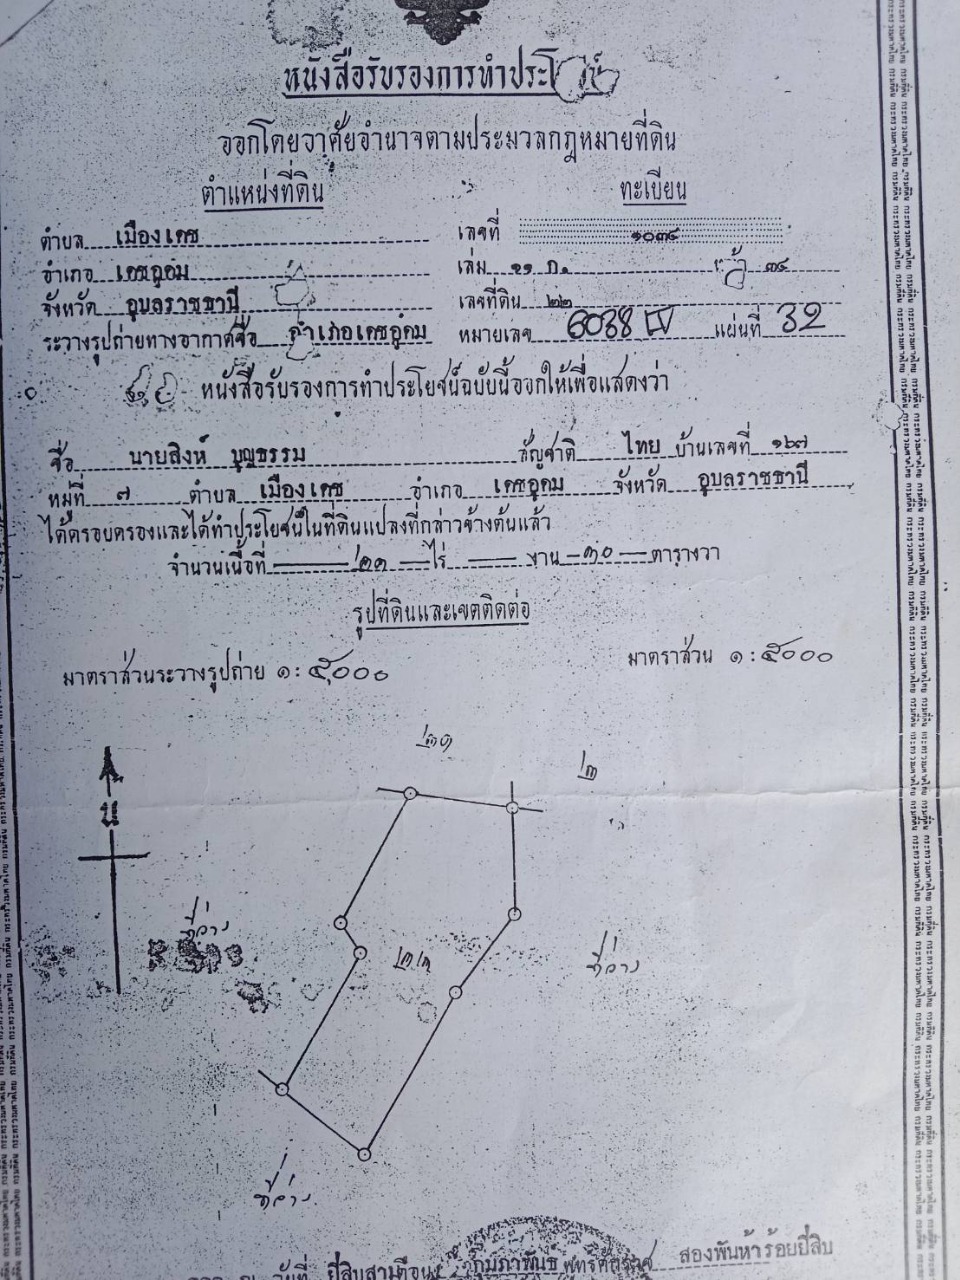 หนังสือรับรองการทำประโยชน์
ออกโดยอาศัยอำนาจตามประมวลกฎหมายที่ดิน
ตำแหน่งที่ดิน ทะเบียน
ตำบล เมืองเดช เลขที่ ๑๐๓๘
อำเภอ เดชอุดม เล่ม ๑๑ ก. หน้า ๓๘
จังหวัด อุบลราชธานี เลขที่ดิน ๒๒
ระวางรูปถ่ายทางอากาศชื่อ อำเภอเดชอุดม หมายเลข 6038 IV แผ่นที่ 32
หนังสือรับรองการทำประโยชน์ฉบับนี้ออกให้เพื่อแสดงว่า
ชื่อ นายสิงห์ บุญธรรม สัญชาติ ไทย บ้านเลขที่ ๑๖๗
หมู่ที่ ๗ ตำบล เมืองเดช อำเภอ เดชอุดม จังหวัด อุบลราชธานี
ได้ครอบครองและได้ทำประโยชน์ในที่ดินแปลงที่กล่าวข้างต้นแล้ว
จำนวนเนื้อที่ ไร่ งาน ๓๐ ตารางวา
รูปที่ดินและเขตติดต่อ
มาตราส่วนระวางรูปถ่าย ๑ : ๕,๐๐๐ มาตราส่วน ๑ : ๕๐๐๐
น
ที่ว่าง
ที่ว่าง
๒๒
ที่ว่าง
วันที่ ยี่สิบสาม เดือน กุมภาพันธ์ พุทธศักราช สองพันห้าร้อยยี่สิบ